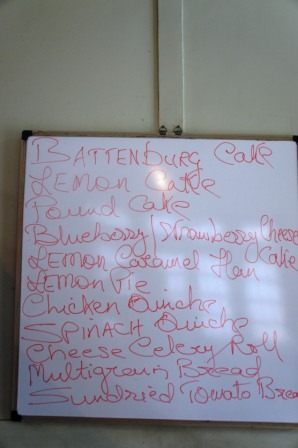 BATTENBURG Cake
LEMON Cake
Pound Cake
Blueberry/Strawberry Cheese
Cake
LEMON Caramel Flan
LEMON Pie
Chicken Quinche
SPINACH Quinche
Cheese Celery Roll
Multigrain Bread
Sundried Tomato Bread